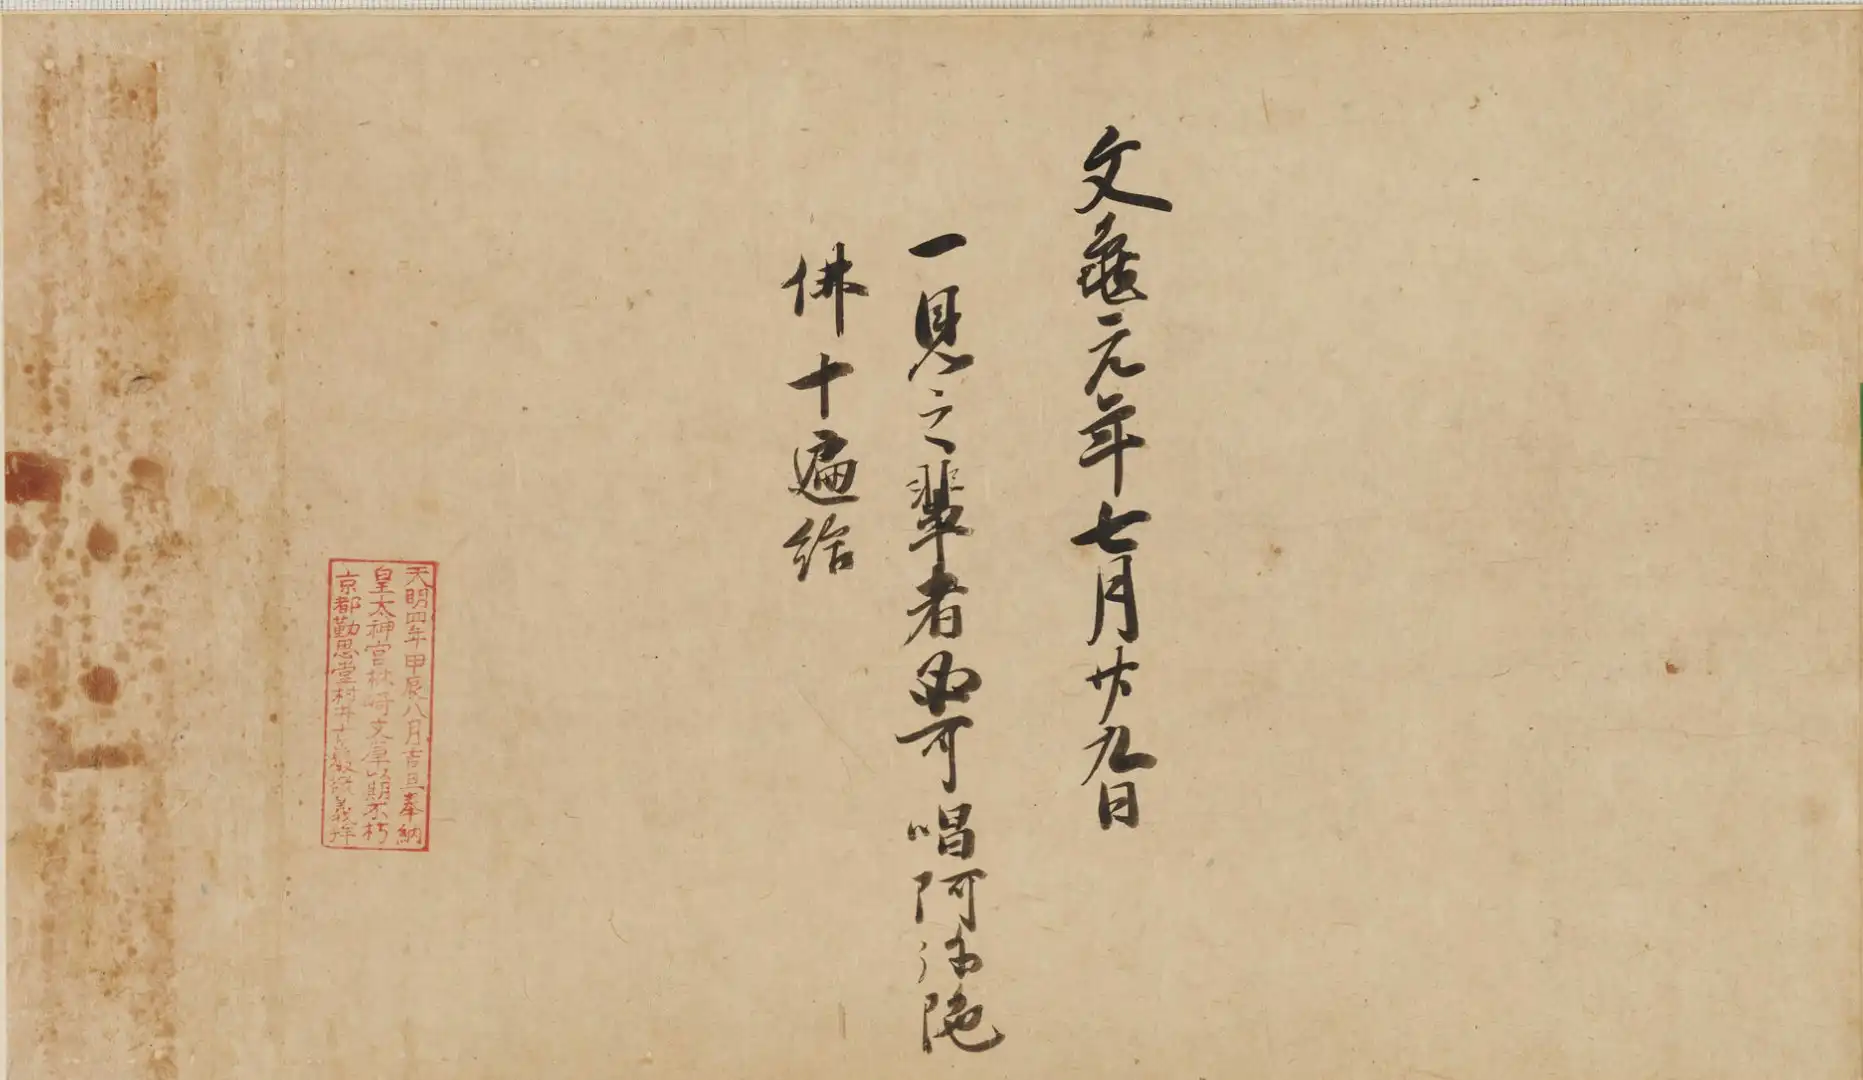 文龜元年七月廿九日
一見之輩者必可唱阿弥陀
佛十遍給
天明四年甲辰八月吉旦奉納
皇太神宮林崎文庫以期不朽
京都勤思堂村井古巖敬義拜